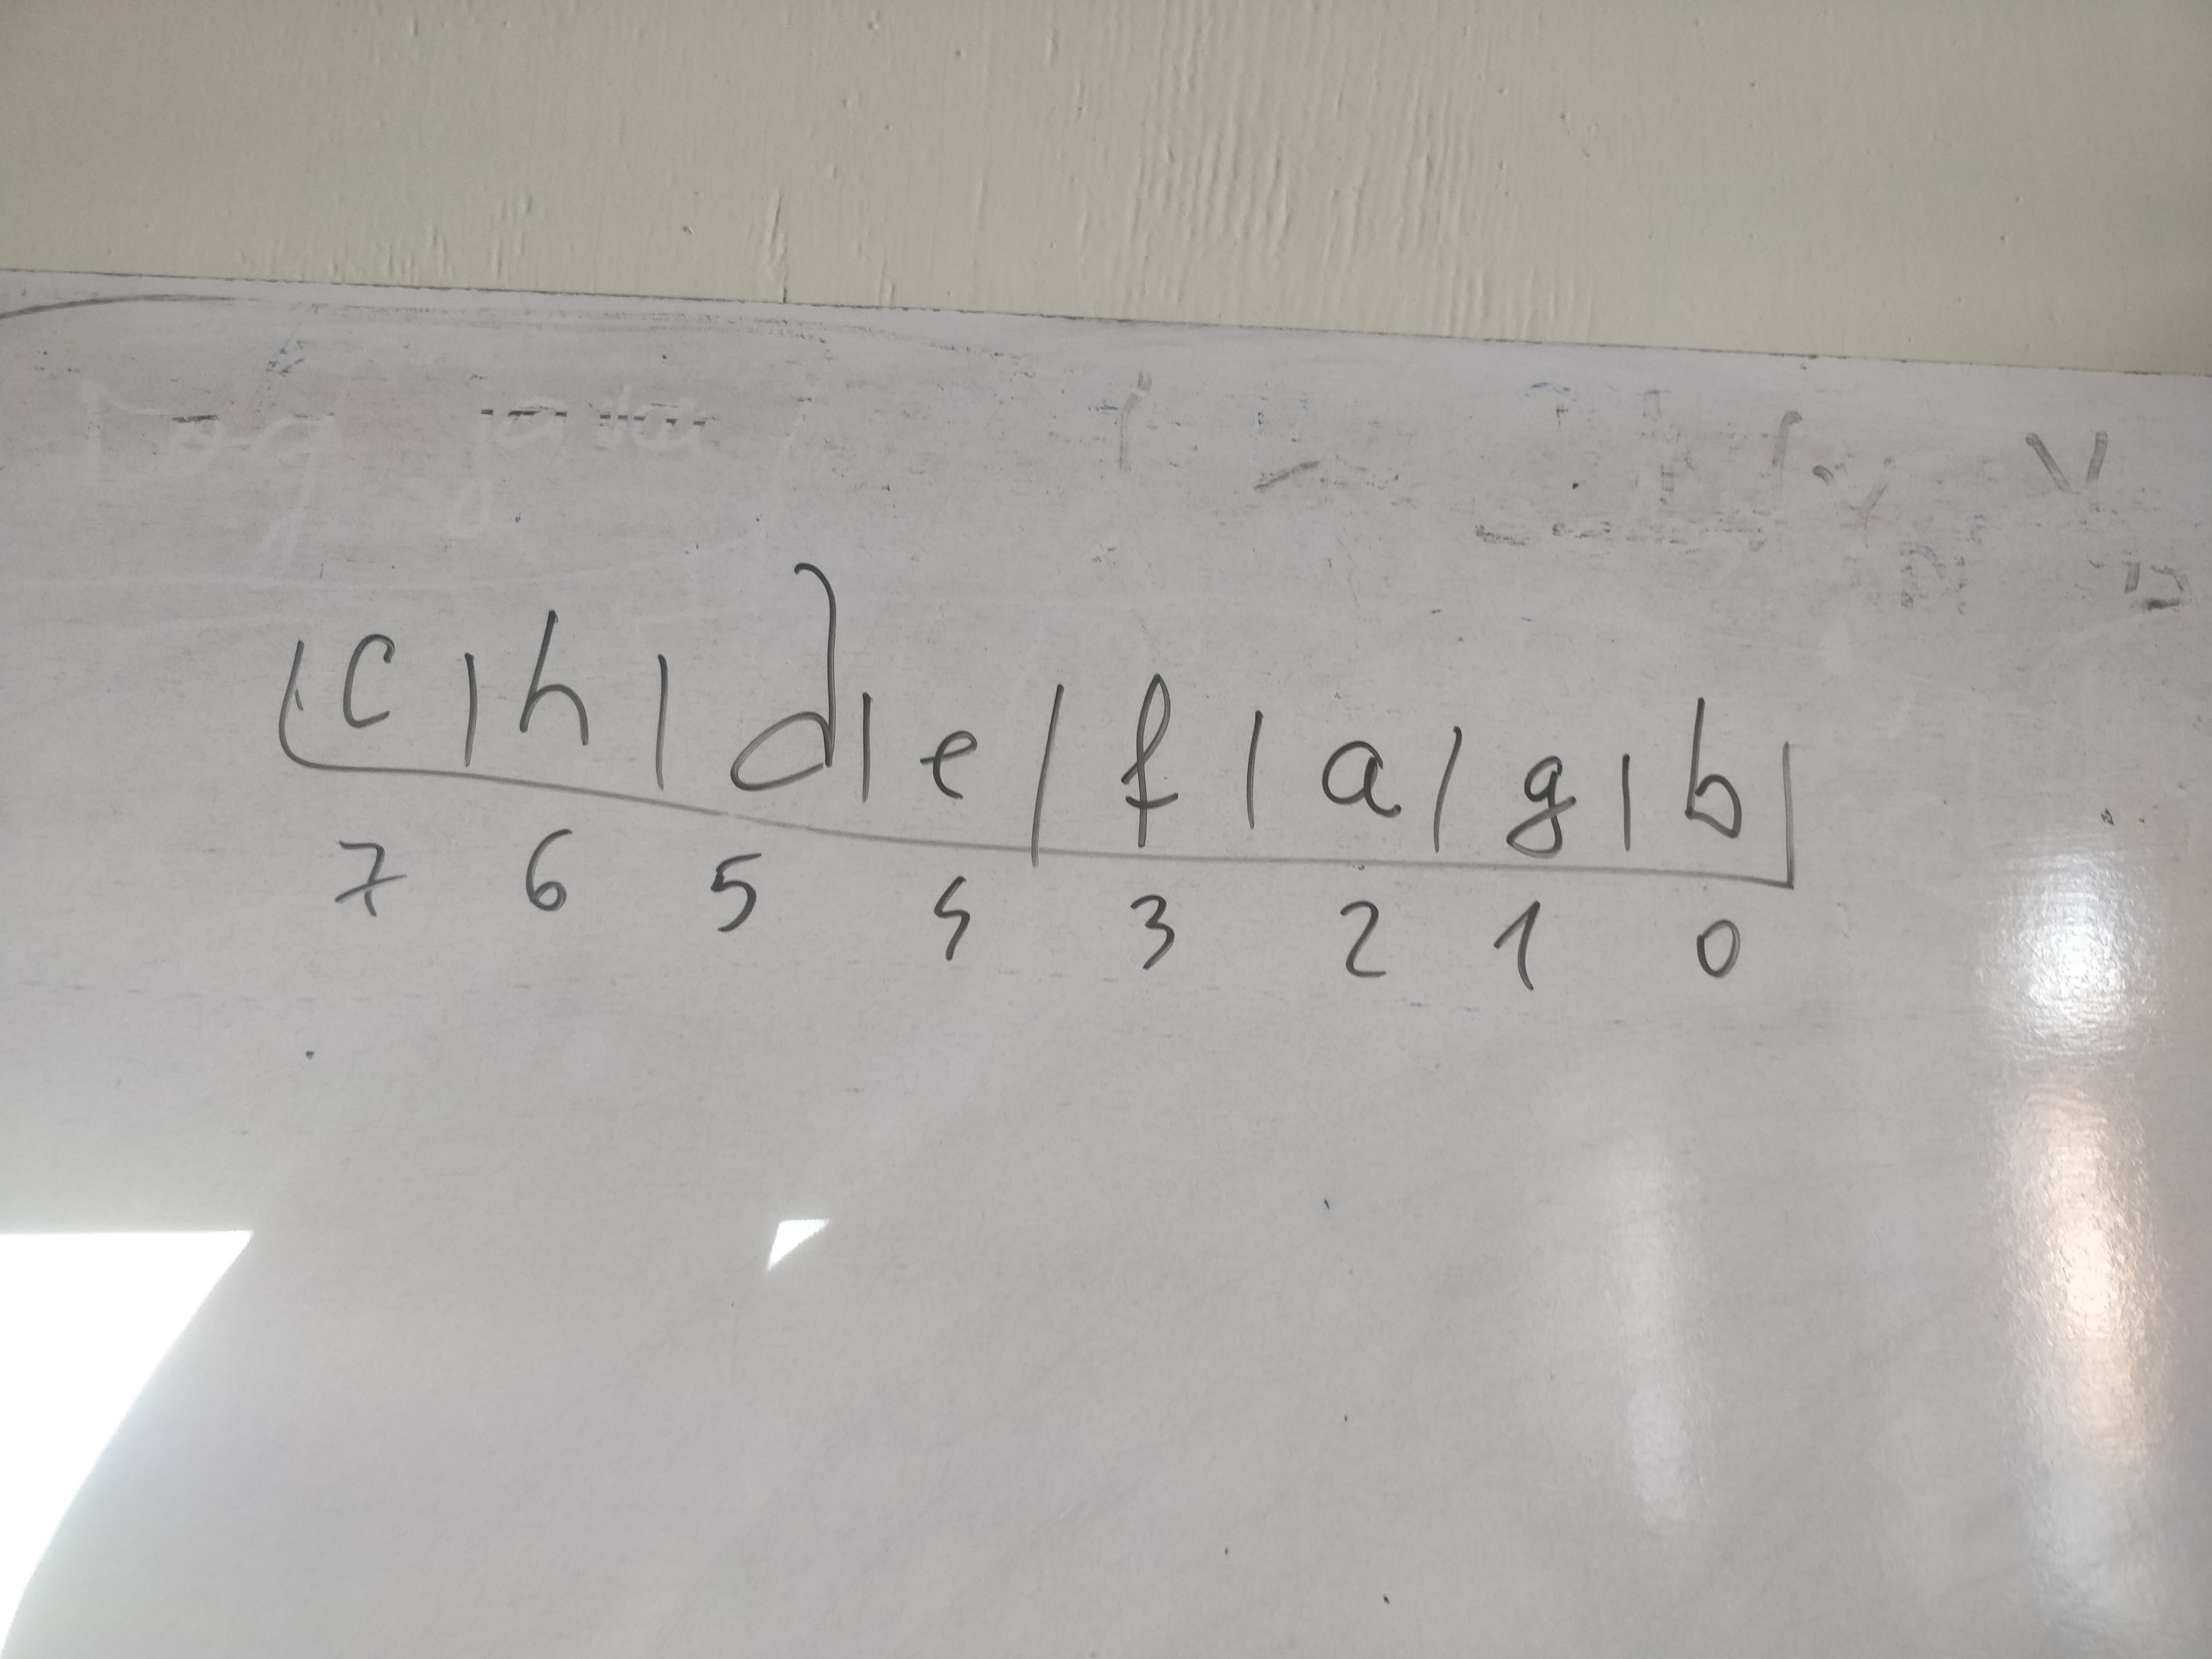 |c|h|d|e|f|a|g|b|
7 6 5 4 3 2 1 0